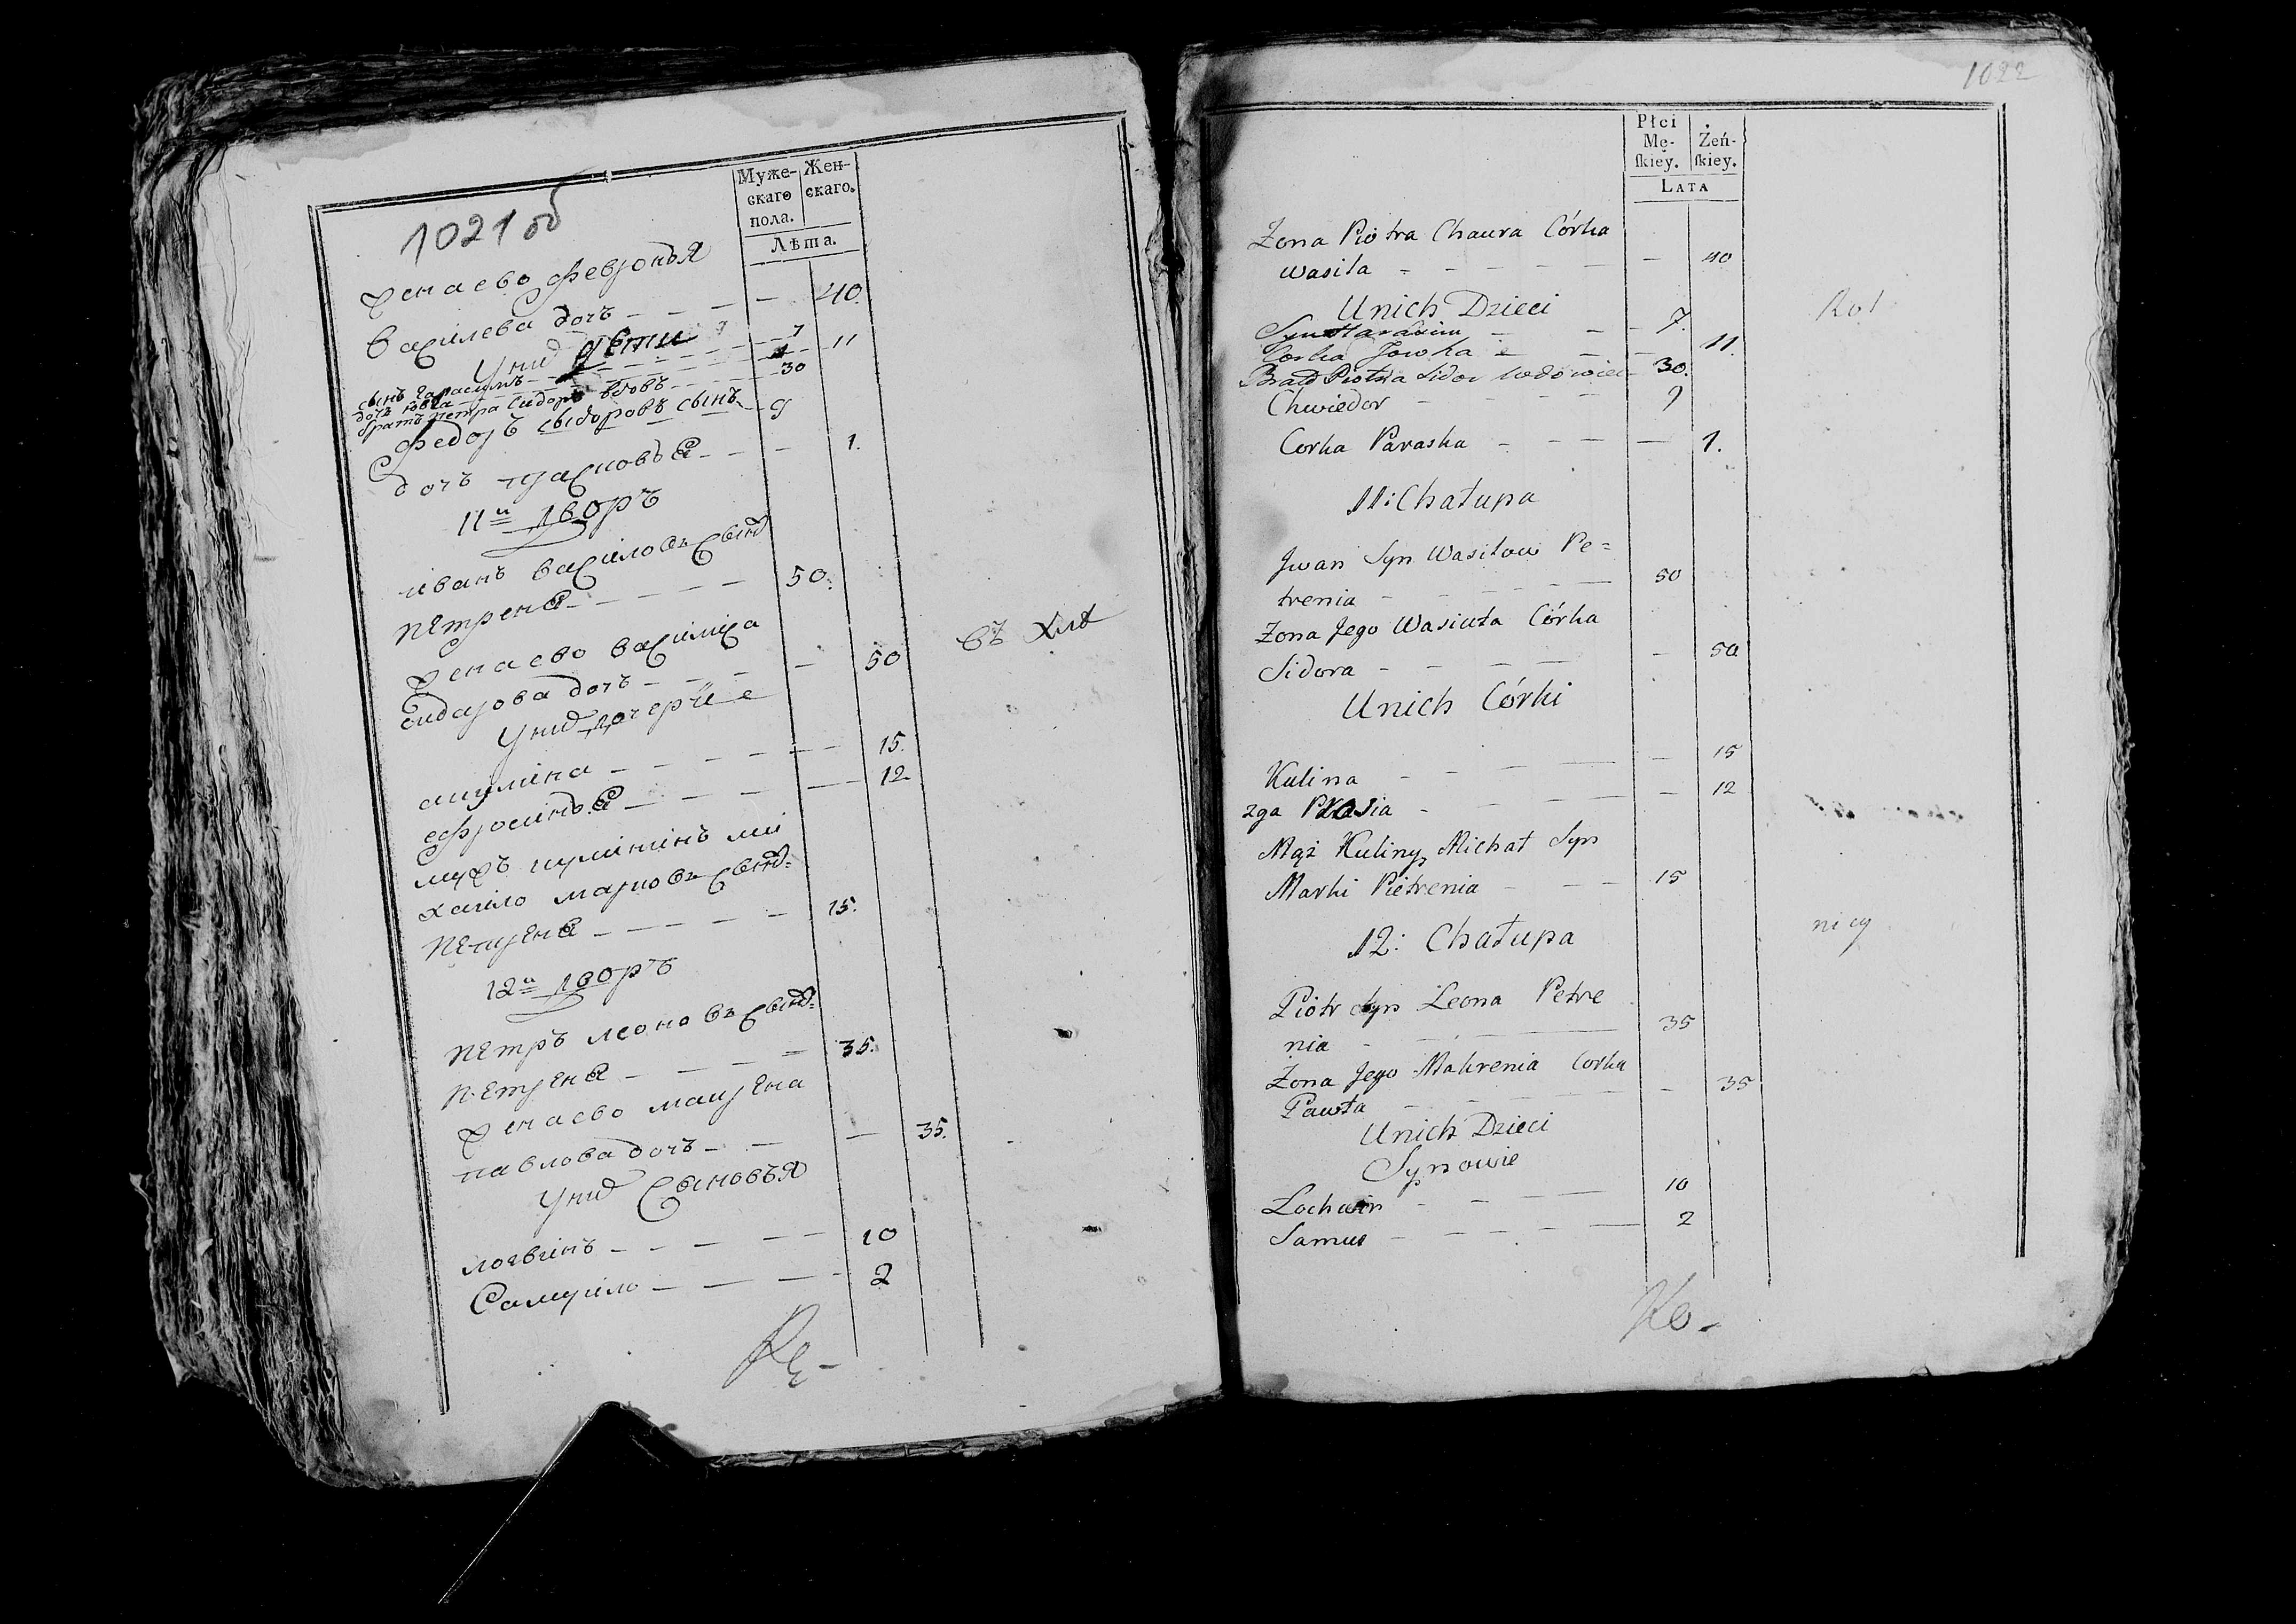 1021 об
Муже-
скаго
пола.
Жен-
скаго.
Лѣта.
жена ево Февронья
Василева дочъ - - - - 40.
У них дети
сынъ Гарасимъ - - - 7
дочъ Ювга - - - 11
братъ Петра Сидоръ вдовъ - - - 30
Федоръ Сыдоровъ сынъ - 9
дочъ Прасковья - - - 1.
11й дворъ
Иванъ Василовъ сынъ
Петреня - - - - - 50.
жена ево Василиса
Сидорова дочъ - - - - 50
въ
У них дочерие
Акулина - - - - - - 15.
Ефросинья - - - - - 12
мужъ Кулининъ Ми
хаило Марковъ сынъ
Петреня - - - - - 15.
12й дворъ
Петръ Леоновъ сынъ
Петреня - - - = 35.
жена ево Макрена
Павлова дочъ - - - 35.
У них Сыновья
Логвинъ - - - - - 10
Самуило - - - - - 2
1022
Płci
Mę-
skiey.
Żeń-
skiey.
LATA
Żona Piotra Chaura Córka
Wasila - - - - - - 40
Unich Dzieci
Syn Harasim - - - 7.
Corka Jowha - - - 11.
Brat Piotra Sidor wdowiec - 30.
Chwiedor - - - - 9
Corka Paraska - - - - 1.
11: Chałupa
Jwan Syn Wasilow Pe=
trenia - - - - 50
Żona Jego Wasiuta Córka
Sidora - - - - - 50
Unich Córki
Kulina - - - - - 15
2ga - - - - - 12
Mąż Kuliny Michał Syn
Marki Pietrenia - - - 15
12: Chałupa
Piotr Syn Leona Petre
nia - - - 35
Żona Jego Makrenia Corka
Pawła - - - - 35
Unich Dzieci
Synowie
Lochwin - - - - 10
Samus - - - - - 2